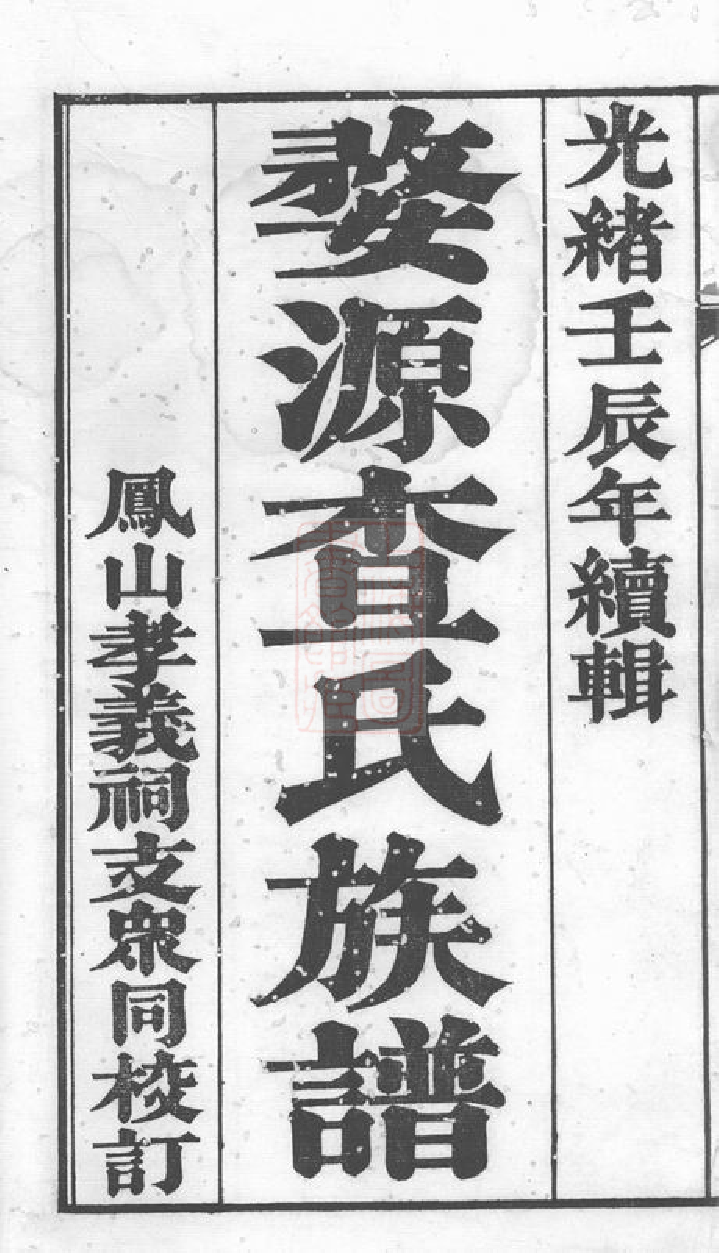 光緒壬辰年續輯
婺源查氏族譜
鳳山孝義祠支眾同校訂